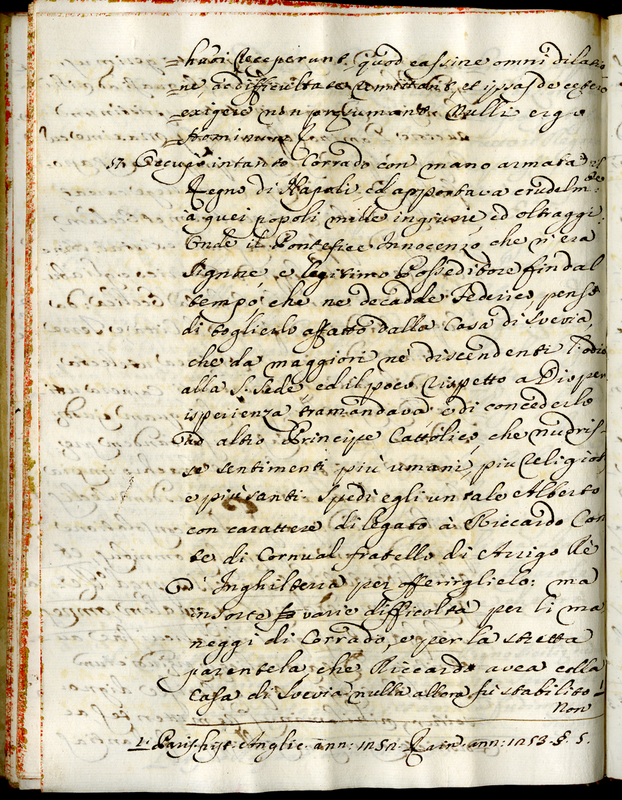 huoi receperunt, quod cassine omni dilatio
ne, ac difficultate restituant, et ipsas de cetero
exigere non presumant. Nulli ergo
hominum &c.
57. Occupò intanto Corrado con mano armata il
Regno di Napoli ed apportava crudelm.e
a quei popoli mille ingiurie ed oltraggi.
Onde il Pontefice Innocenzo che n'era
Signore e legitimo Posseditore fin dal
tempo che ne decadde Federico pensò
di toglierlo affatto dalla Casa di Svevia,
che da maggiori ne discendenti l'odio
alla S. Sede, ed il poco rispetto a Dio per
isperienza tramandava e di concederlo
ad altro Principe Cattolico, che nudris-
se sentimenti più umani, più religiosi
e più santi. Spedì egli un tale Alberto
con carattere di legato à Riccardo Con
te di Cornual fratello di Arrigo Rè
d'Inghilterra per offerirglielo: ma
insorte varie difficoltà per li ma
neggi di Corrado, e per la stretta
parentela che Riccardo avea colla
Casa di Svevia nulla allora fu stabilito 1
Non
1. Paris hist. Anglic. ann: 1252. Rain. ann: 1253. §. 5.